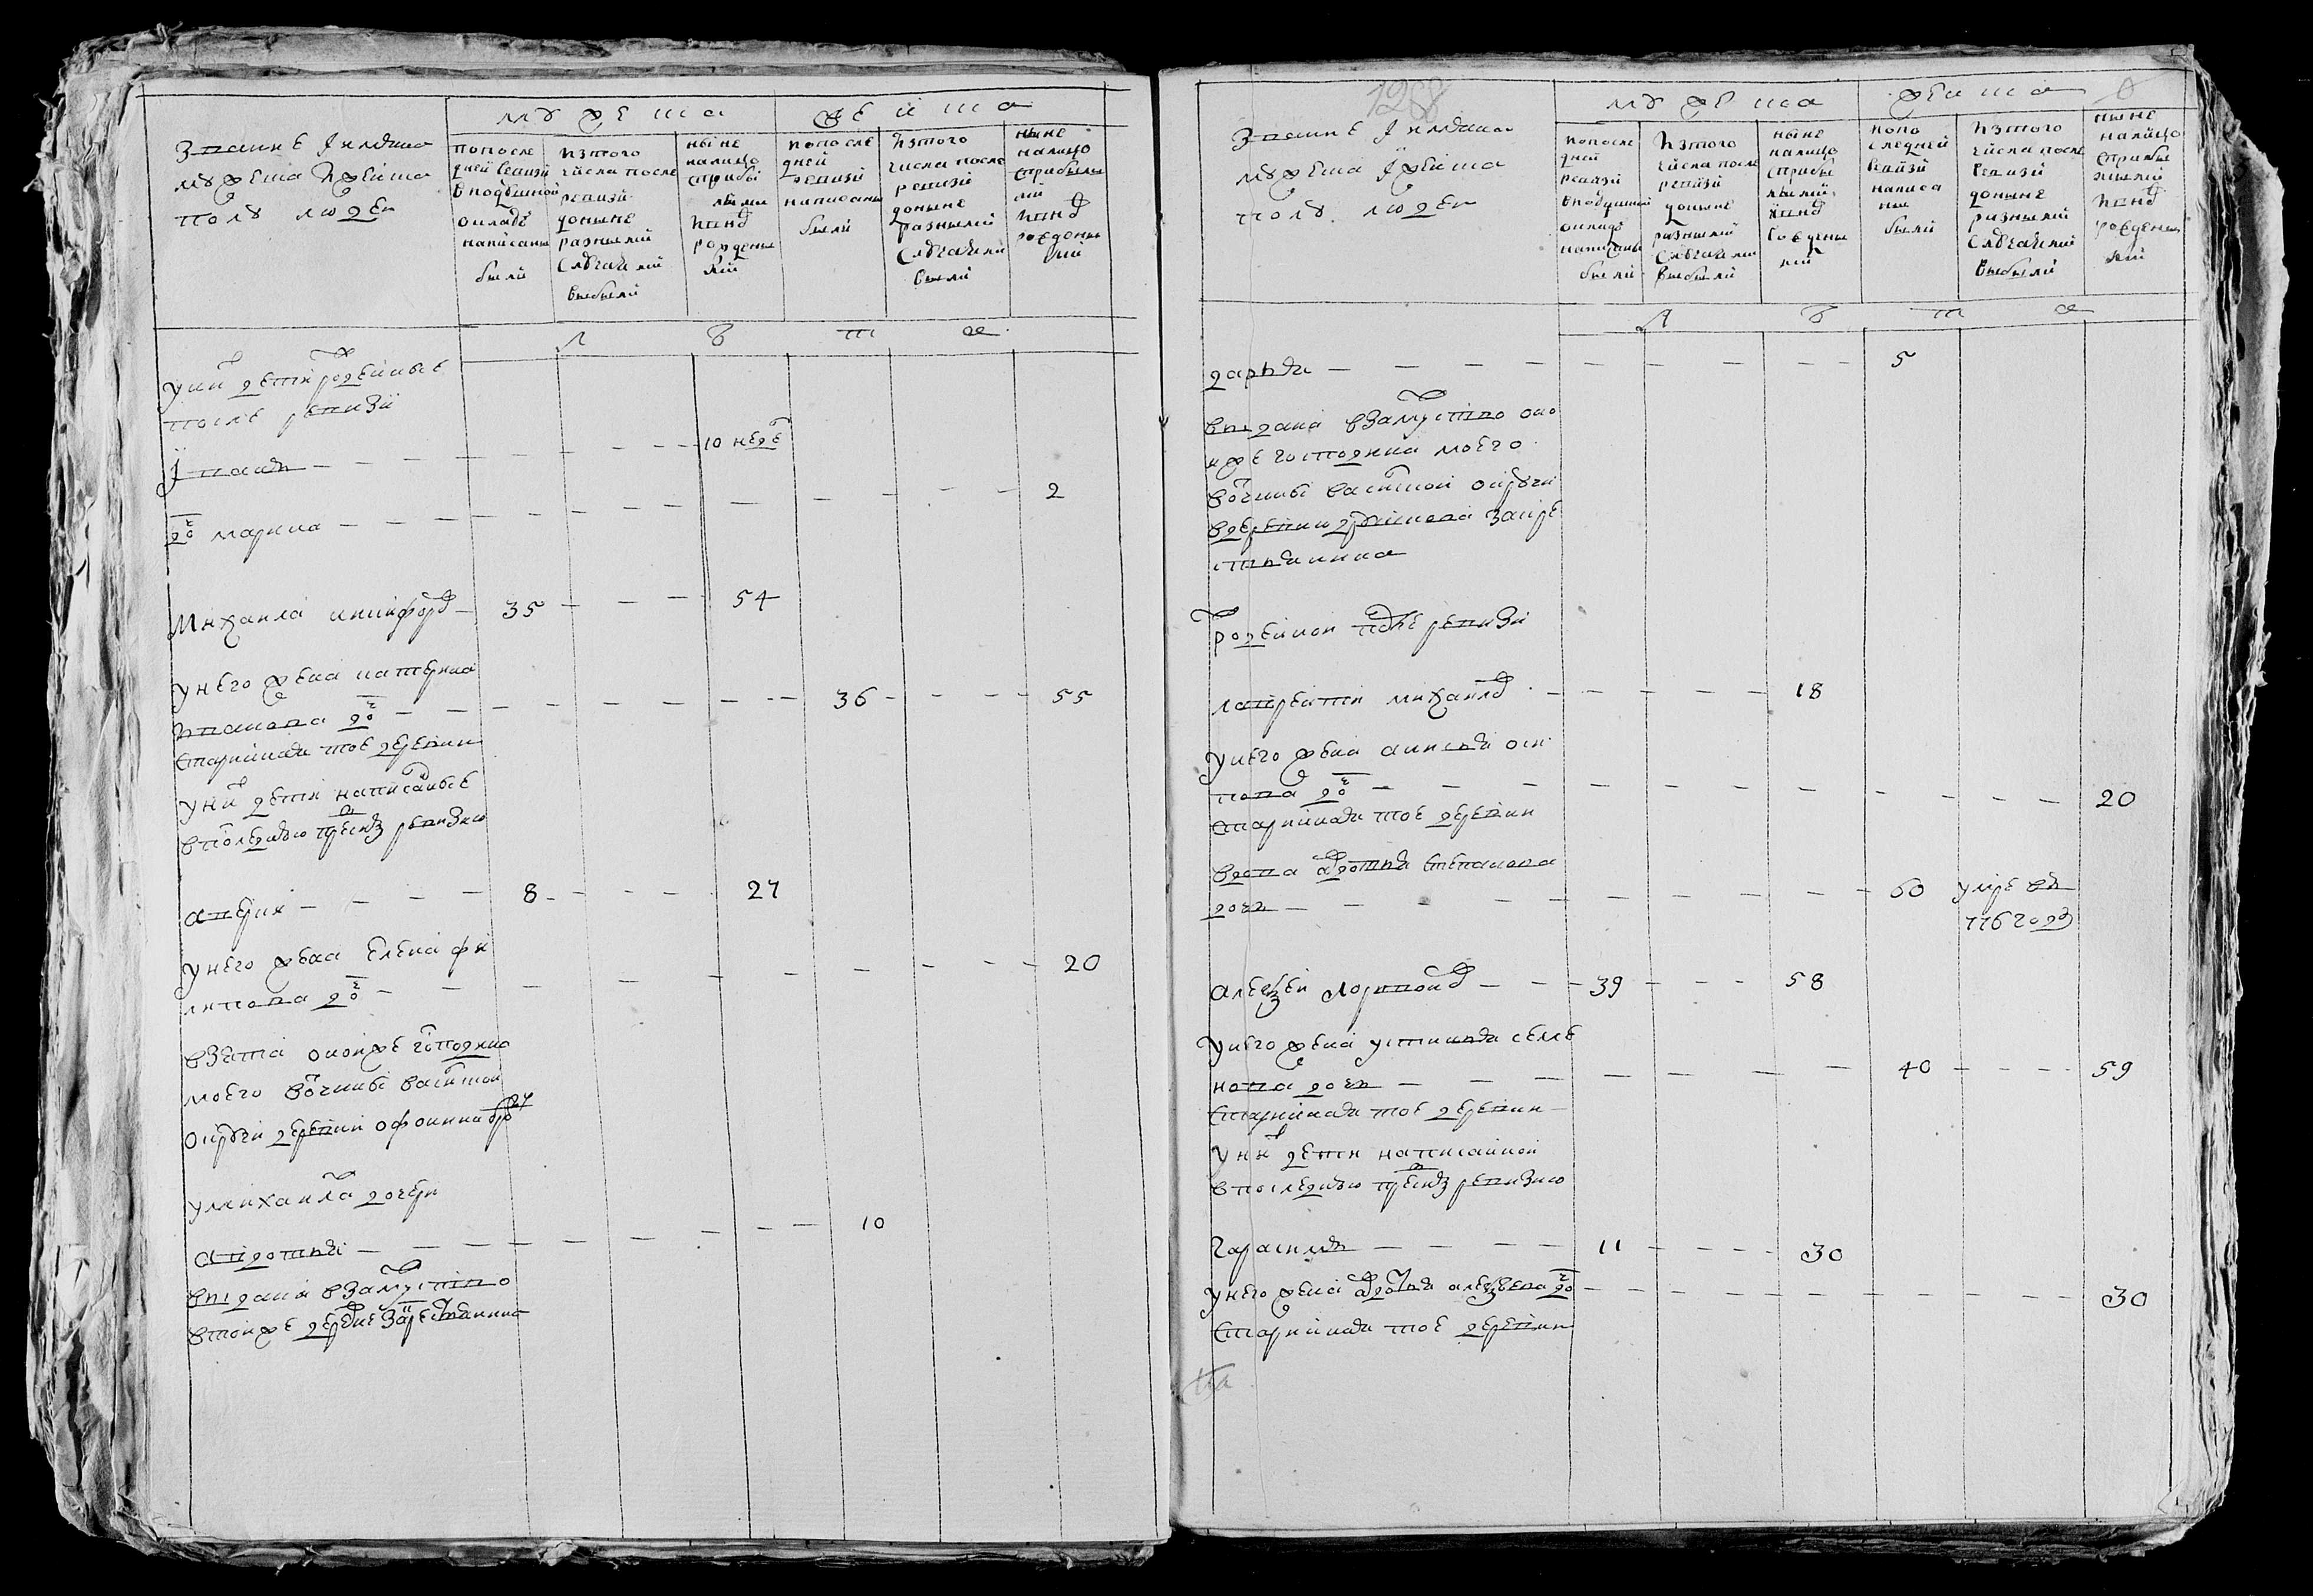 звание и имена
мужеска и женска
полу людеи
мужеска
женска
попосле
дней ревизи
вподушной
окладе
написаны
были
изтого
числа после
ревизи
доныне
разными
случаями
выбыли
ныне
налицо
сприбы
лыми
и внов
рожденны
ми
попосле
дней
ревизи
написаны
были
изтого
числа после
ревизи
доныне
разными
случаями
выбыли
ныне
налицо
сприбылы
ми
и внов
рожденны
ми
л ѣ т а
уних дети рожденные
после ревизи
иван 10 неде
до марина 2
Михаила никифоров 35 54
унего жена катерина
иванова доч 36 55
старинная тое деревни
уних дети написанные
впоследнюю пред сим ревизию
аверин 8 27
унего жена елена фи
липова доч 20
взята оного же господина
моего вотчины
округи деревни
умихаила дочери
авдотья 10
выдана взамужство
втойже деревне закрестьянина
1268
звание и имена
мужеска и женска
полу людеи
мужеска
женска
попосле
дней
ревизи
вподушной
окладе
написаны
были
изтого
числа после
ревизи
доныне
разными
случаями
выбыли
ныне
налицо
сприбы
лыми
и внов
рожденны
ми
попо
следней
ревизи
написа
ны
были
изтого
числа после
ревизи
доныне
разными
случаями
выбыли
ныне
налицо
сприбы
лыми
и внов
рожденны
ми
л ѣ т а
дарья 5
выдана взамужство оно
го же господина моего
вотчины округи
вдеревни закре
стьянина
рожденной после ревизи
лаврентий михаилов 18
унего жена аксинья оси
пова доч 20
старинная тое деревни
вдова авдотья степанова
дочь 60 умре в
776 году
алексеи ларионов 39 58
унего жена устинья семе
нова дочь 40 59
старинная тое деревни
уних дети написанной
впоследнюю пред сим ревизию
гарасим 11 30
унего жена алексеева доч 30
старинная тое деревни